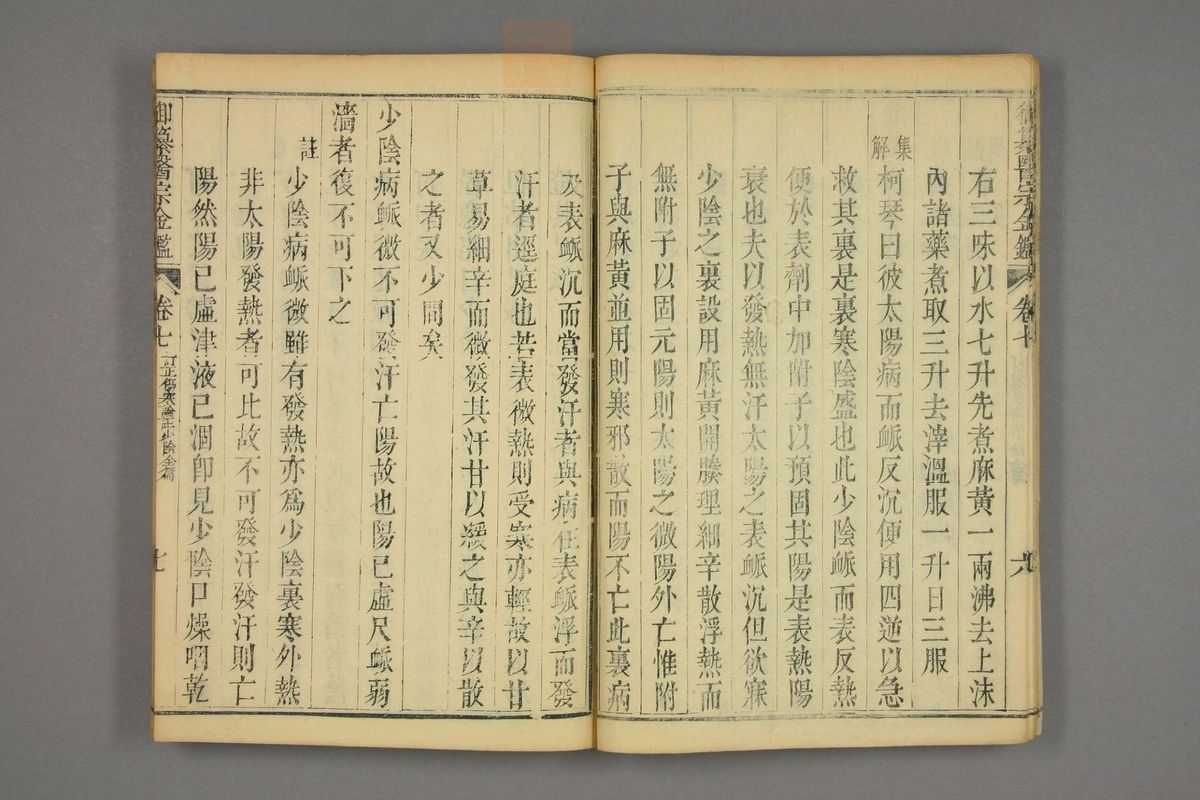 御纂醫宗金鑑 卷七 六
右三味以水七升先煮麻黃一兩沸去上沫
內諸藥煮取三升去滓溫服一升日三服
集解
柯琴曰彼太陽病而脈反沉便用四逆以急
救其裏是裏寒陰盛也此少陰脈而表反熱
便於表劑中加附子以預固其陽是表熱陽
衰也夫以發熱無汗太陽之表脈沉但欲寐
少陰之裏設用麻黃開腠理細辛散浮熱而
無附子以固元陽則太陽之微陽外亡惟附
子與麻黃並用則寒邪散而陽不亡此裏病
及表脈沉而當發汗者與病在表脈浮而發
汗者逕庭也若表微熱則受寒亦輕故以甘
草易細辛而微發其汗甘以緩之與辛以散
之者又少間矣
少陰病脈微不可發汗亡陽故也陽已虛尺脈弱
濇者復不可下之
註
少陰病脈微雖有發熱亦爲少陰裏寒外熱
非太陽發熱者可比故不可發汗發汗則亡
陽然陽已虛津液已涸卽見少陰口燥咽乾
御纂醫宗金鑑 卷七 訂正傷寒論註少陰全篇 七